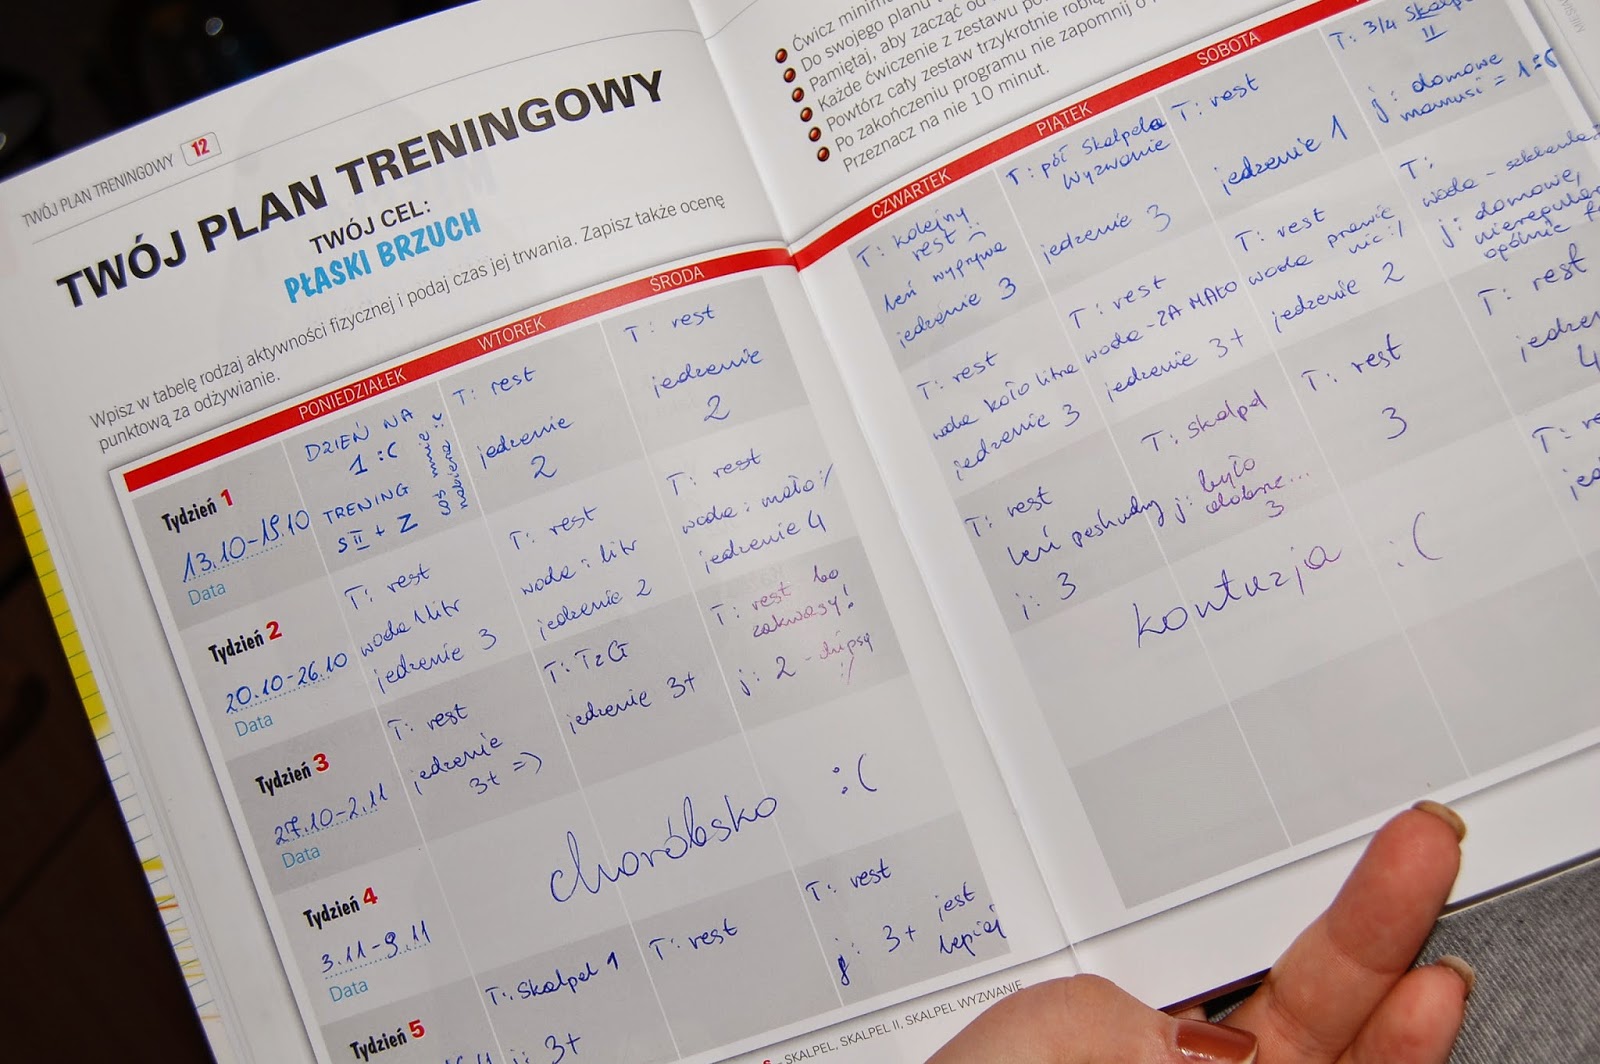 TWÓJ PLAN TRENINGOWY 12
TWÓJ PLAN TRENINGOWY
TWÓJ CEL:
PŁASKI BRZUCH
Wpisz w tabelę rodzaj aktywności fizycznej i podaj czas jej trwania. Zapisz także ocenę
punktową za odżywianie.
Ćwicz
Do swojego planu
Pamiętaj, aby zacząć od
Każde ćwiczenie z zestawu
Powtórz cały zestaw trzykrotnie
Po zakończeniu programu nie zapomnij o
Przeznacz na nie 10 minut.
PONIEDZIAŁEK WTOREK ŚRODA CZWARTEK PIĄTEK SOBOTA
Tydzień 1
13.10-19.10
Data
DZIEŃ NA
1 :C
TRENING
S II + Z
T: rest
jedzenie
2
T: rest
jedzenie
2
T: kolejny
rest
leń wygrywa
jedzenie 3
T: pół Skalpela
Wyzwanie
jedzenie 3
T: rest
jedzenie 1
T: 3/4
II
j: domowe
mamusi = 1 :C
Tydzień 2
20.10-26.10
Data
T: rest
woda 1 litr
jedzenie 3
T: rest
woda : litr
jedzenie 2
T: rest
woda : mało :/
jedzenie 4
T: rest
woda koło litra
jedzenie 3
T: rest
woda - ZA MAŁO
jedzenie 3+
T: rest
woda prawie
nic :/
jedzenie 2
T:
woda -
j: domowe,
Tydzień 3
27.10-2.11
Data
T: rest
jedzenie
3+ =)
T: TzG
jedzenie 3+
T: rest bo
zakwasy!
j: 2 - chipsy
:/
T: rest
leń paskudny
j: 3
T: skalpel
j: było
dobrze...
3
T: rest
3
T: rest
4
Tydzień 4
3.11-9.11
Data
choróbsko :(
kontuzja :(
T:
Tydzień 5
T: Skalpel 1
j: 3+
T: rest
T: rest
j: 3+ jest
lepiej
SKALPEL, SKALPEL II, SKALPEL WYZWANIE